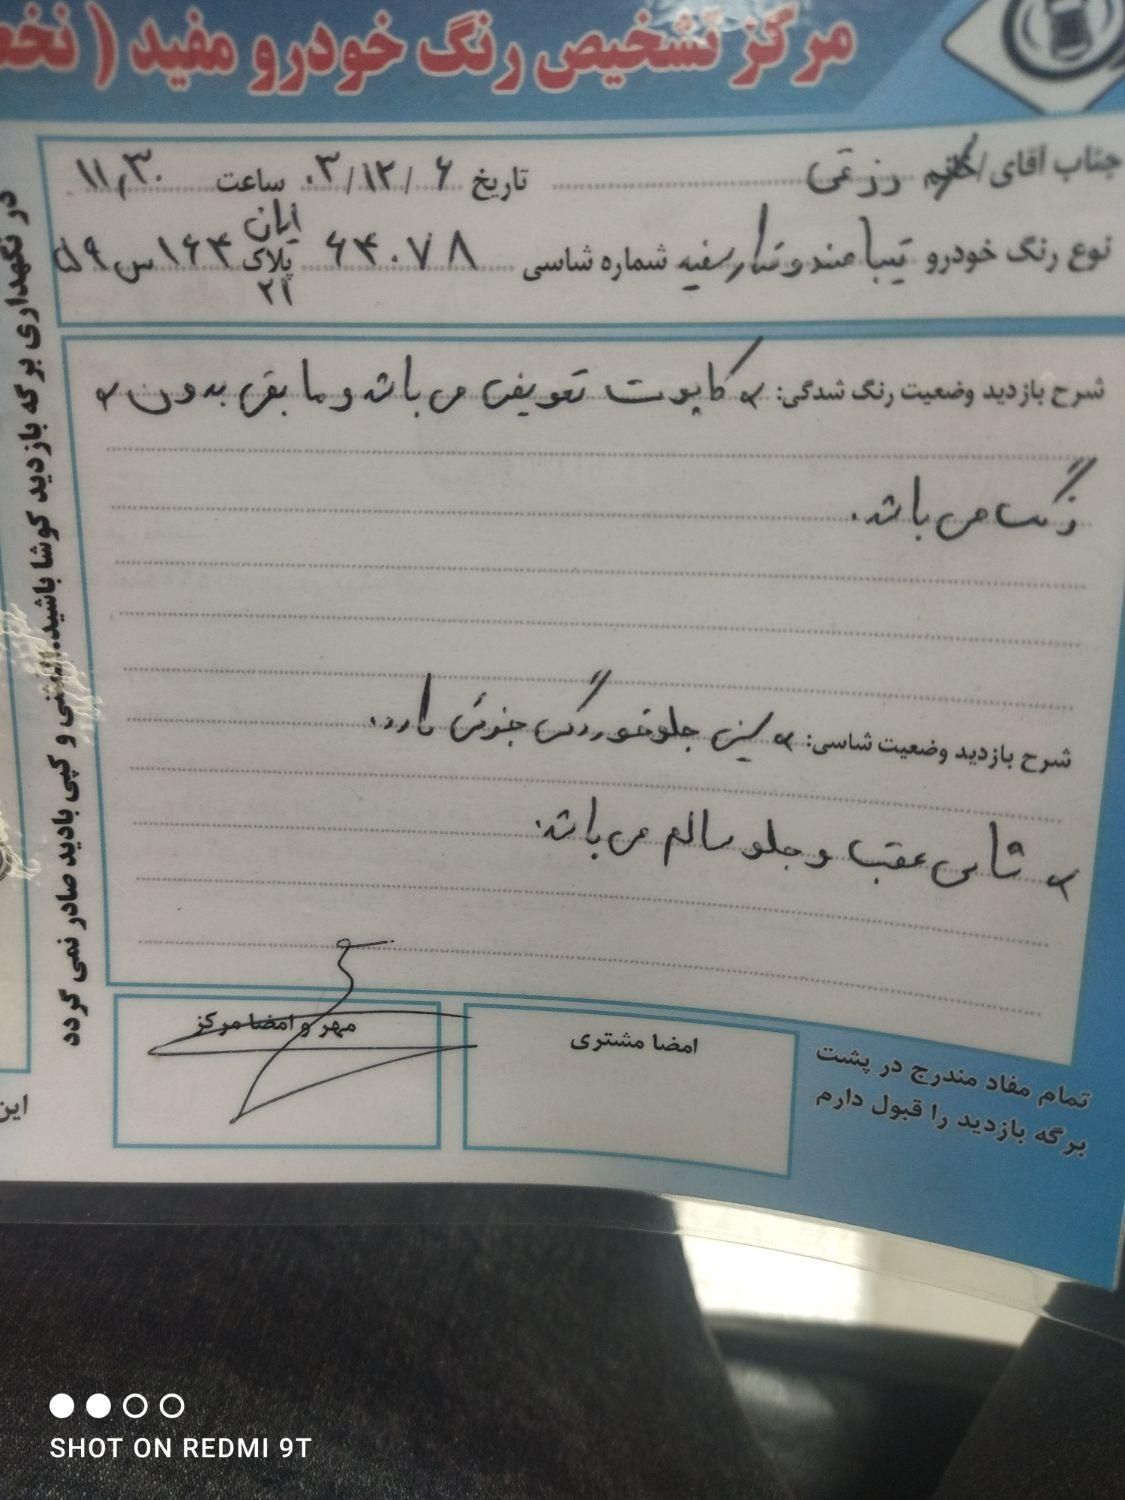 مرکز تشخیص رنگ خودرو مفید (
جناب آقای / خانم رزقی تاریخ ۰۳/۱۲/۶ ساعت ۱۱,۳۰
نوع رنگ خودرو تیبا صندوقدار سفید شماره شاسی ۶۴۰۷۸ پلاک ۱۶۴ س ۵۹ ایران ۲۱
شرح بازدید وضعیت رنگ شدگی: کاپوت تعویض می باشد و مابقی بدون
رنگ می باشد.
شرح بازدید وضعیت شاسی: سینی جلو خوردگی جزئی دارد.
شاسی عقب و جلو سالم می باشد.
در نگهداری برگه بازدید کوشا باشید. المثنی و کپی بازدید صادر نمی گردد
مهر و امضا مرکز
امضا مشتری
تمام مفاد مندرج در پشت
برگه بازدید را قبول دارم
این
SHOT ON REDMI 9T